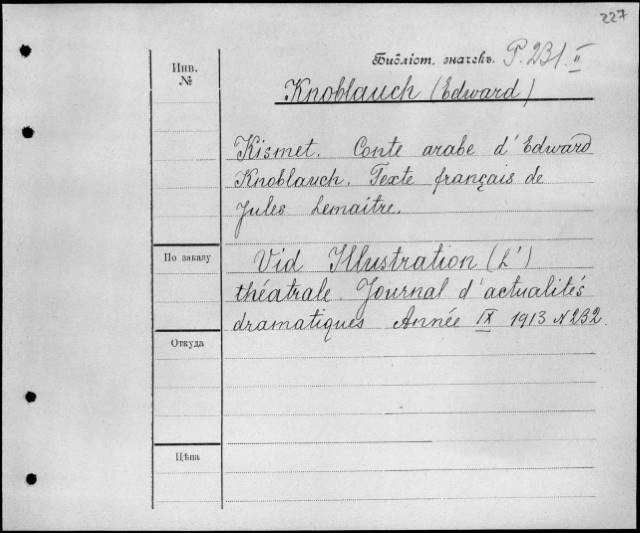 227
Инв.
№
Библіот. значекъ. P. 231. II
Knoblauch (Edward)
Kismet. Conte arabe d'Edward
Knoblauch. Texte français de
Jules Lemaitre.
По заказу
Vid Illustration (L')
théatrale. Journal d'actualités
dramatiques Année IX 1913 N 232.
Откуда
Цѣна